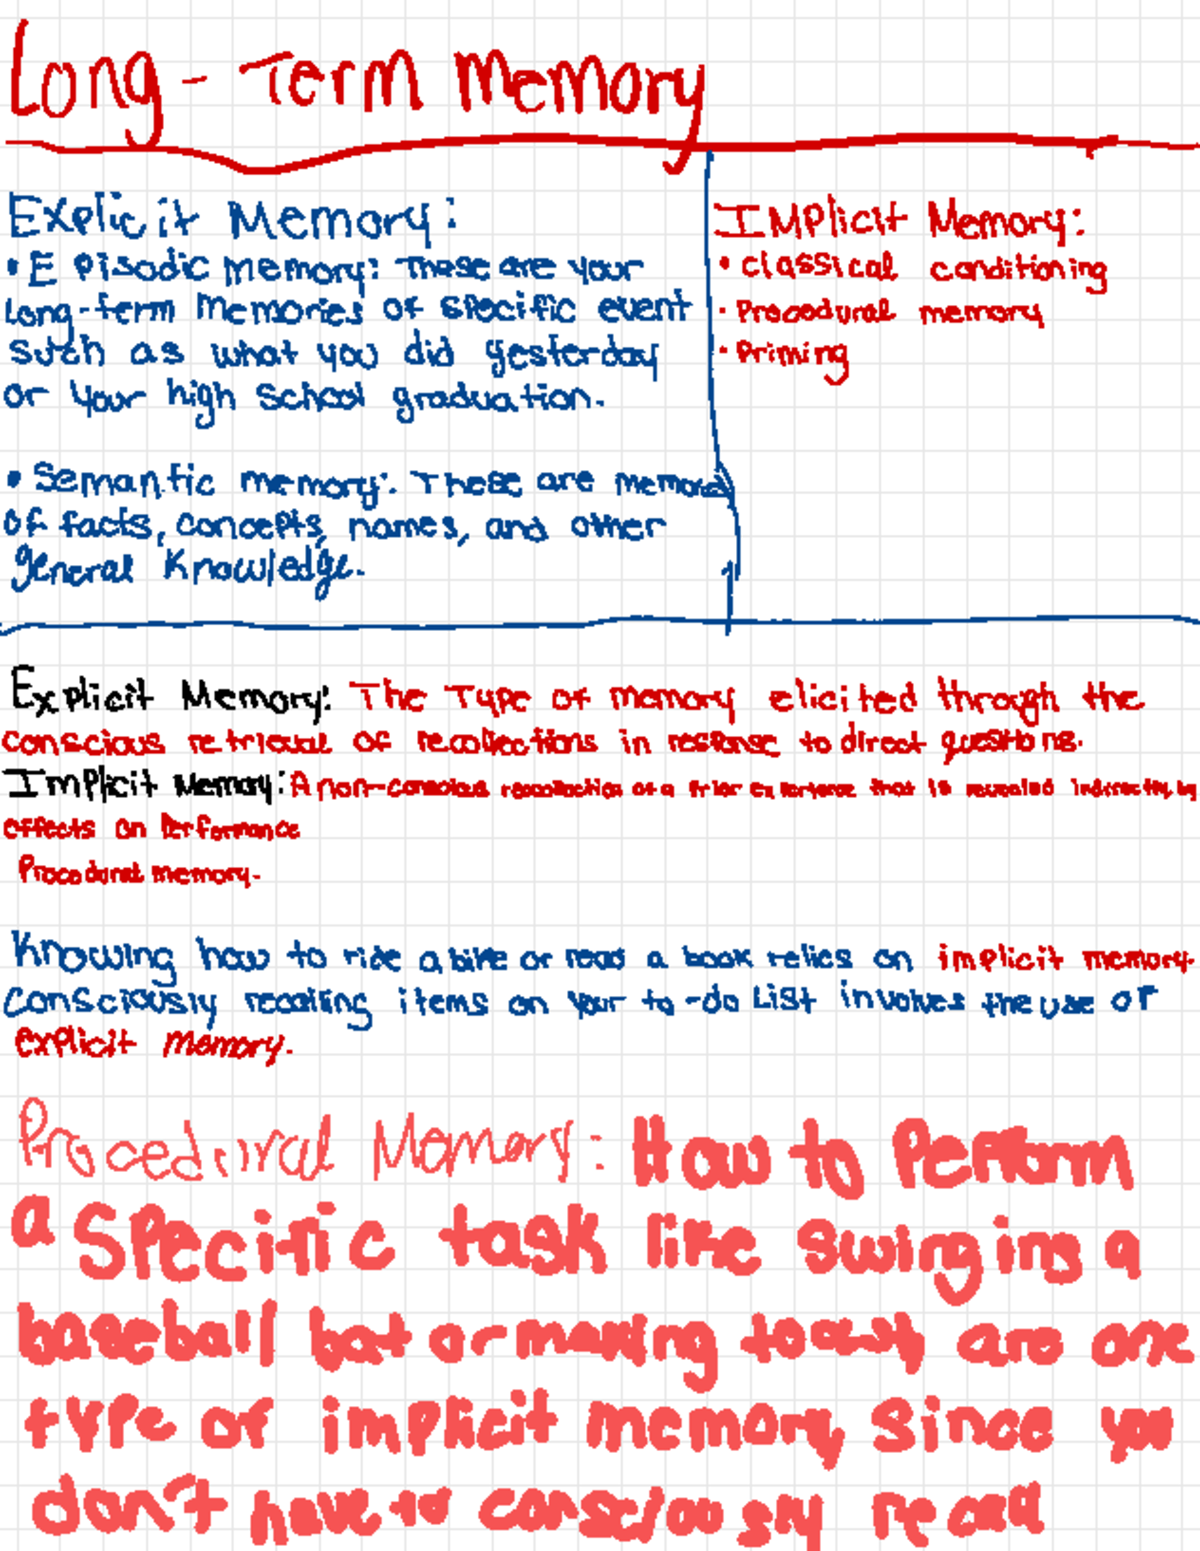 Long-Term Memory
Explicit Memory:
• Episodic memory: These are your
long-term memories of specific event
such as what you did yesterday
or your high school graduation.
• Semantic memory: These are memories
of facts, concepts, names, and other
general knowledge.
Implicit Memory:
• classical conditioning
• Procedural memory
• Priming
Explicit Memory: The Type of memory elicited through the
conscious retrieval of recollections in response to direct questions.
Implicit Memory: A non-conscious recollection of a Prior experience that is revealed indirectly, by
effects on Performance
Procedural memory.
Knowing how to ride a bike or read a book relies on implicit memory.
Consciously recalling items on your to-do List involves the use of
explicit memory.
Procedural Memory: How to Perform
a specific task like swinging a
baseball bat or making toast are one
type of implicit memory since you
don't have to consciously recall